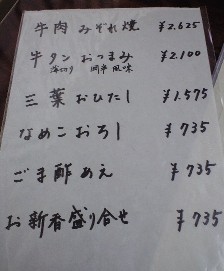 牛肉 みぞれ焼 ¥2.625
牛タン おつまみ ¥2.100
薄切り 風味
三葉おひたし ¥1.575
なめこおろし ¥735
ごま酢あえ ¥735
お新香盛り合せ ¥735